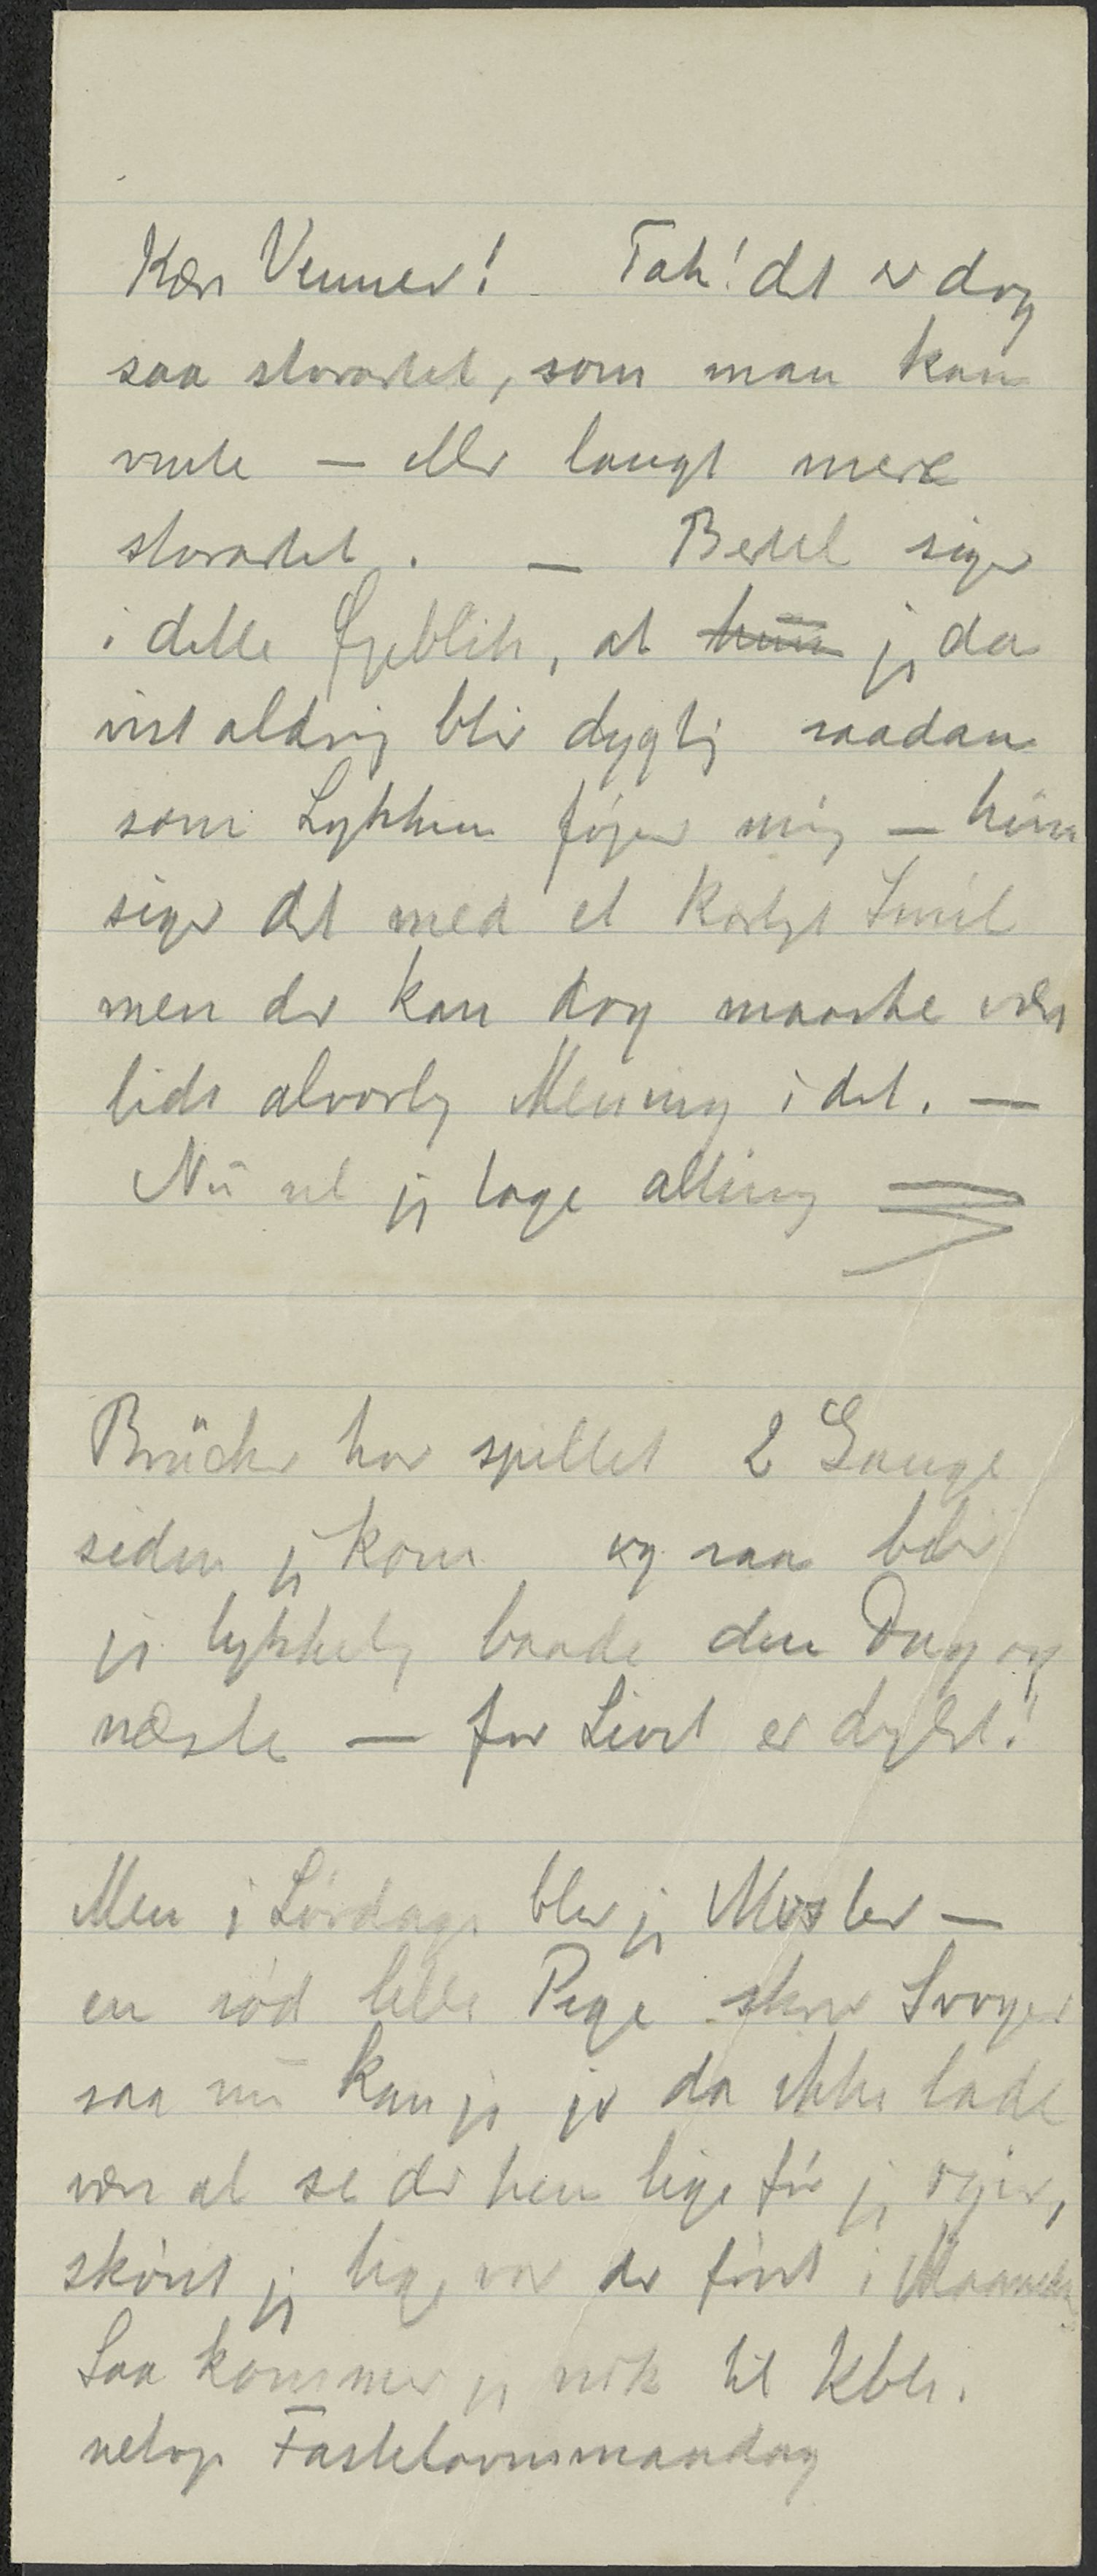 Kære Venner! Tak! det er dog
saa storartet, som man kan
vente — eller langt mere
storartet. — Bertel siger
i dette Øjeblik, at hun jeg da
vist aldrig blir dygtig saadan
som Lykken føjer mig — hun
siger det med et kærligt Smil
men der kan dog maaske være
lidt alvorlig Mening i det. —
Nu vil jeg tage alting
Brücker har spillet 2 Gange
siden jeg kom og saa blir
jeg lykkelig baade den Dag og
næste — for Livet er dejligt!
Men i Lørdags blev jeg Moster —
en sød lille Pige store Svoger
saa nu kan jeg jo da ikke lade
være at se der hen lige før jeg rejser,
skønt jeg lige var der først i Maaneden
Saa kommer jeg nok til Kbh.
netop Fastelavnsmandag